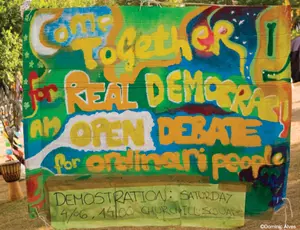 Come
Together !
for REAL DEMOCRACY
AN OPEN DEBATE
for ordinari people
DEMOSTRATION: SATURDAY
©Dominic Alves